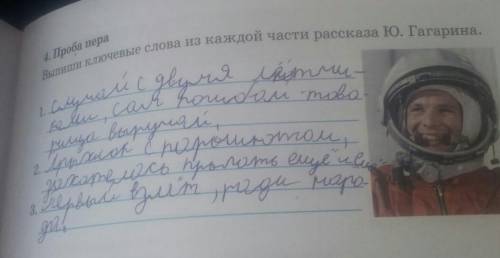 4. Проба пера
Выпиши ключевые слова из каждой части рассказа Ю. Гагарина.
1. Случай с двумя лётчи-
ками, сам погибай - това-
рища выручай,
2. Прыжок с парашютом,
захотелось прыгать ещё и ещё
3. Первый взлёт, ради наро-
да.